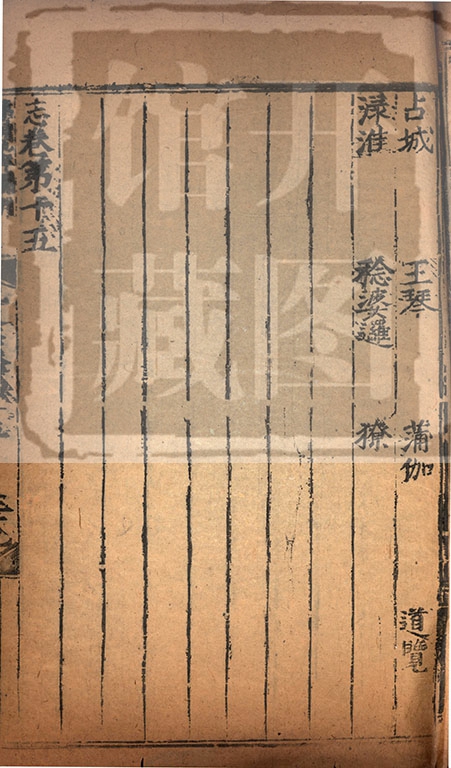 占城 王琴 蒲伽 道覽
渌淮 稔婆邏 獠
志卷第十五
开图
馆藏